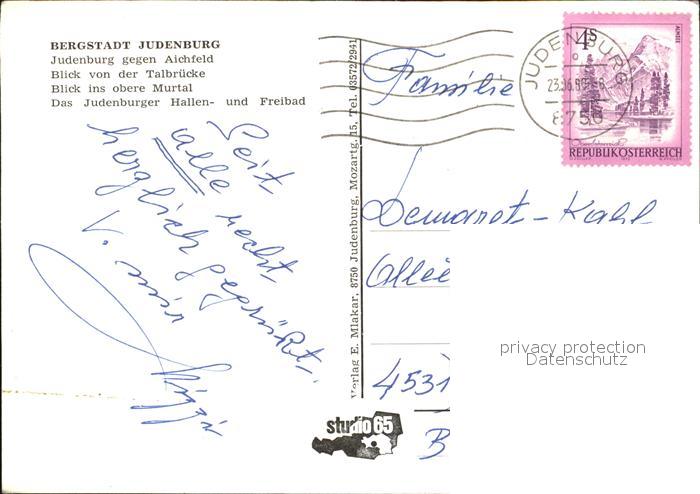 BERGSTADT JUDENBURG
Judenburg gegen Aichfeld
Blick von der Talbrücke
Blick ins obere Murtal
Das Judenburger Hallen- und Freibad
Seit
alle recht
herzlich gegrüßt
v. mir
Verlag E. Mlakar, 8750 Judenburg, Mozartg. 15, Tel. 03572/2941
studio 65
JUDENBURG
8750
4S
ALMSEE
REPUBLIK ÖSTERREICH
Familie
Demarat-Kahl
Allee
4531
B
privacy protection
Datenschutz